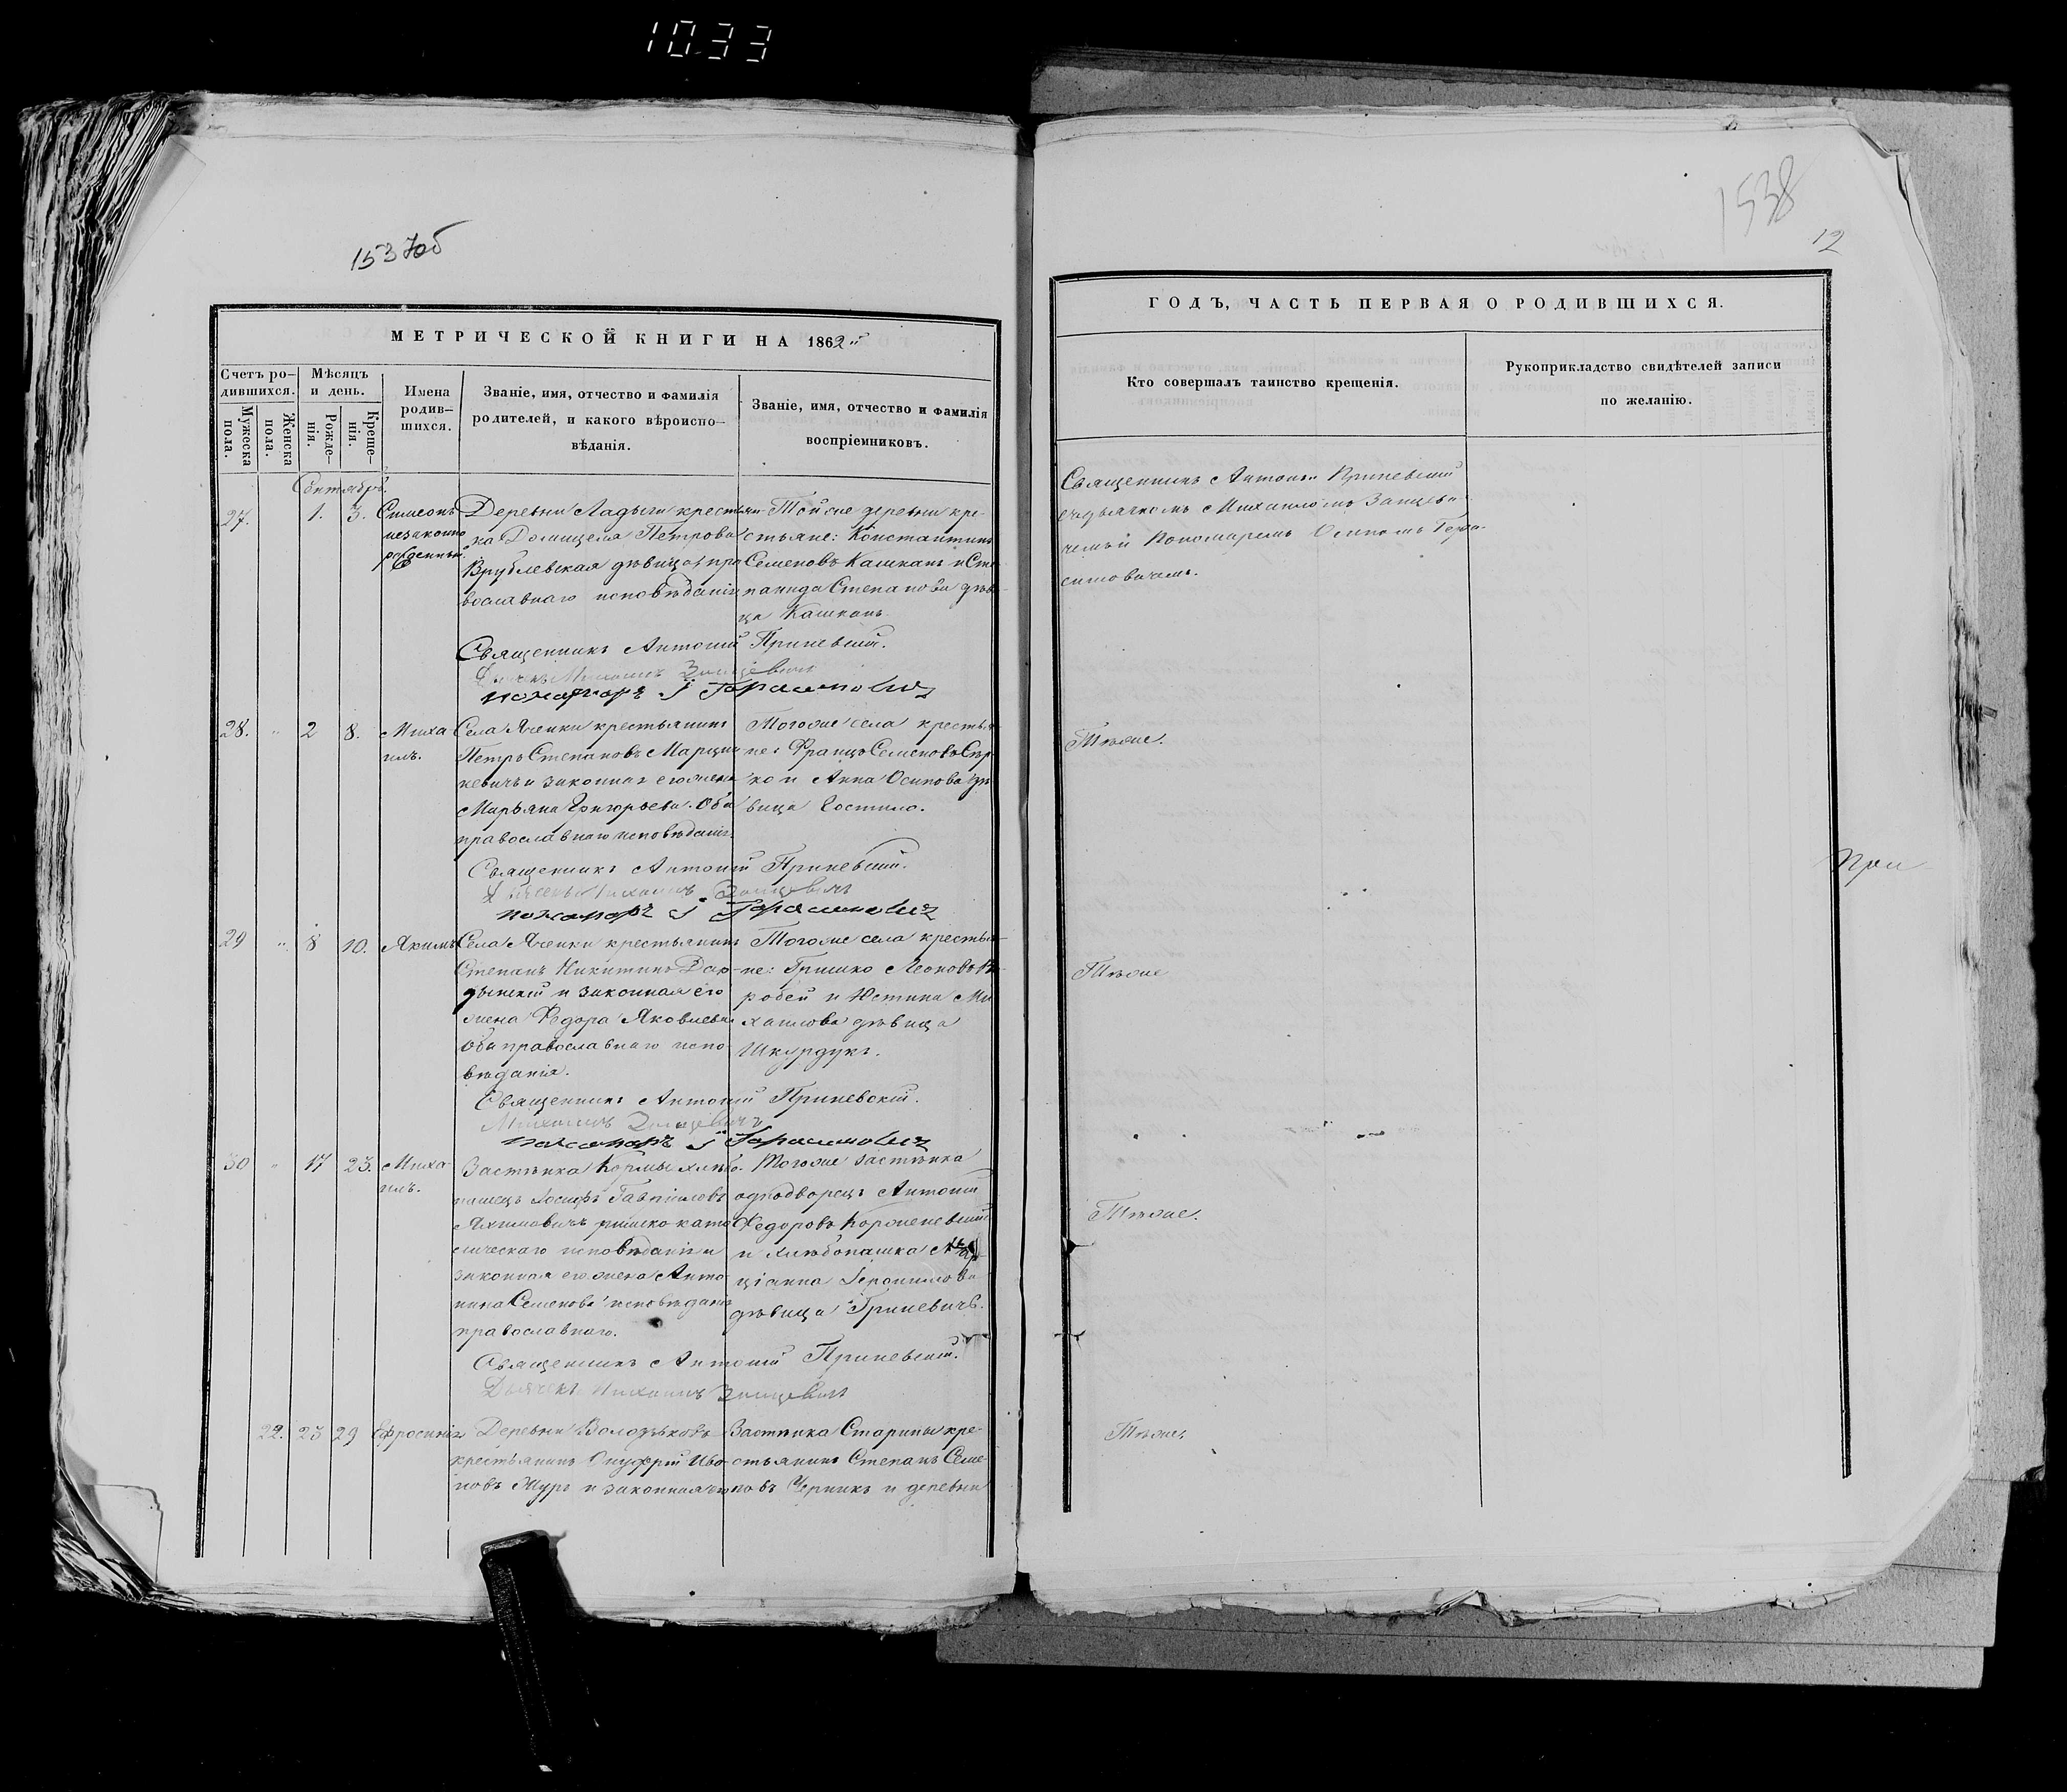 1033
1537об
МЕТРИЧЕСКОЙ КНИГИ НА 1862й
Счетъ ро-
дившихся.
Мужеска
пола.
Женска
пола.
Мѣсяцъ
и день.
Рожде-
нія.
Креще-
нія.
Имена
родив-
шихся.
Званіе, имя, отчество и фамилія
родителей, и какого вѣроиспо-
вѣданія.
Званіе, имя, отчество и фамилія
воспріемниковъ.
Сентябрь.
27. 1. 3. Симеонъ
незаконно
рожденный.
Деревни Ладыги крестьян-
ка Домицеля Петрова
Врублевская дѣвица православнаго исповѣданія
Той же деревни кре-
стьяне: Константинъ
Семеновъ Кашканъ и Сте-
панида Степанова дѣви-
ца Кашканъ
Священникъ Антоній Приневскій.
Дьячекъ Михаилъ Занцевичъ
пономарь І Горасимовичъ
28. " 2 8. Миха-
илъ.
Села Яченки крестьянинъ
Петръ Степановъ Марцин-
кевичъ и законная его жена
Марьяна Григорьева. Оба
православнаго исповѣданія.
Тогоже села крестья-
не: Францъ Семеновъ
и Анна Осипова дѣ-
вица Костило.
Священникъ Антоній Приневскій.
Дьячекъ Михаилъ Занцевичъ
пономарь І Горасимовичъ
29 " 8 10. Якимъ
Села Яченки крестьянинъ
Степанъ Никитинъ
и законная его
жена Федора Яковлева
Оба православнаго испо-
вѣданія.
Тогоже села крестья-
не: Гришко Леоновъ Во-
робей и Юстина Ми-
хаилова дѣвица
Шкурдукъ.
Священникъ Антоній Приневскій.
Михаилъ Занцевичъ
пономарь І Горасимовичъ
30 " 17 23. Миха-
илъ.
Застѣнка Кормы хлѣбо-
пашецъ Іосифъ Гавріиловъ
Яхимовичъ римско-като-
лическаго исповѣданія и
законная его жена Анто-
нина Семенова исповѣданія
православнаго.
Тогоже застѣнка
однодворецъ Антоній
Федоровъ Короневскій
и хлѣбопашка Мар-
ціанна Іеронимова
дѣвица Гриневичъ.
Священникъ Антоній Приневскій.
Дьячекъ Михаилъ Занцевичъ
22. 23 29 Ефросинія
Деревни Володьковъ
крестьянинъ Онуфрій Ива-
новъ Журъ и законная его
Застѣнка Старины кре-
стьянинъ Степанъ Семе-
новъ Черникъ и деревни
1538
12
ГОДЪ, ЧАСТЬ ПЕРВАЯ О РОДИВШИХСЯ.
Кто совершалъ таинство крещенія.
Рукоприкладство свидѣтелей записи
по желанію.
Священникъ Антоній Приневскій
съ дьячкомъ Михаиломъ Занцеви-
чемъ и Пономаремъ Осипомъ Гера-
симовичемъ.
Тѣже.
Тѣже
Тѣже.
Тѣже.
При